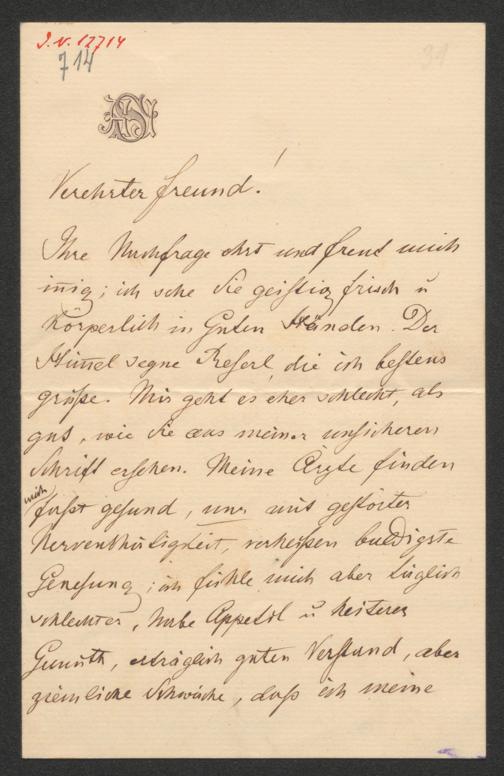 J. N. 12714
714
31
Verehrter Freund!
Ihre Nachfrage ehrt und freut mich
innig; ich sehe Sie geistig frisch u
Körperlich in Guten Händen. Der
Himmel segne Reserl, die ich bestens
grüße. Mir geht es eher schlecht, als
gut, wie Sie aus meiner unsicheren
Schrift ersehen. Meine Ärzte finden
mich
fast gesund, nur mit gestörter
Nerventhätigkeit, verheißen baldigste
Genesung; ich fühle mich aber täglich
schlechter, habe Appetit u heiteres
Gemüth, erträglich guten Verstand, aber
ziemliche Schwäche, daß ich meine